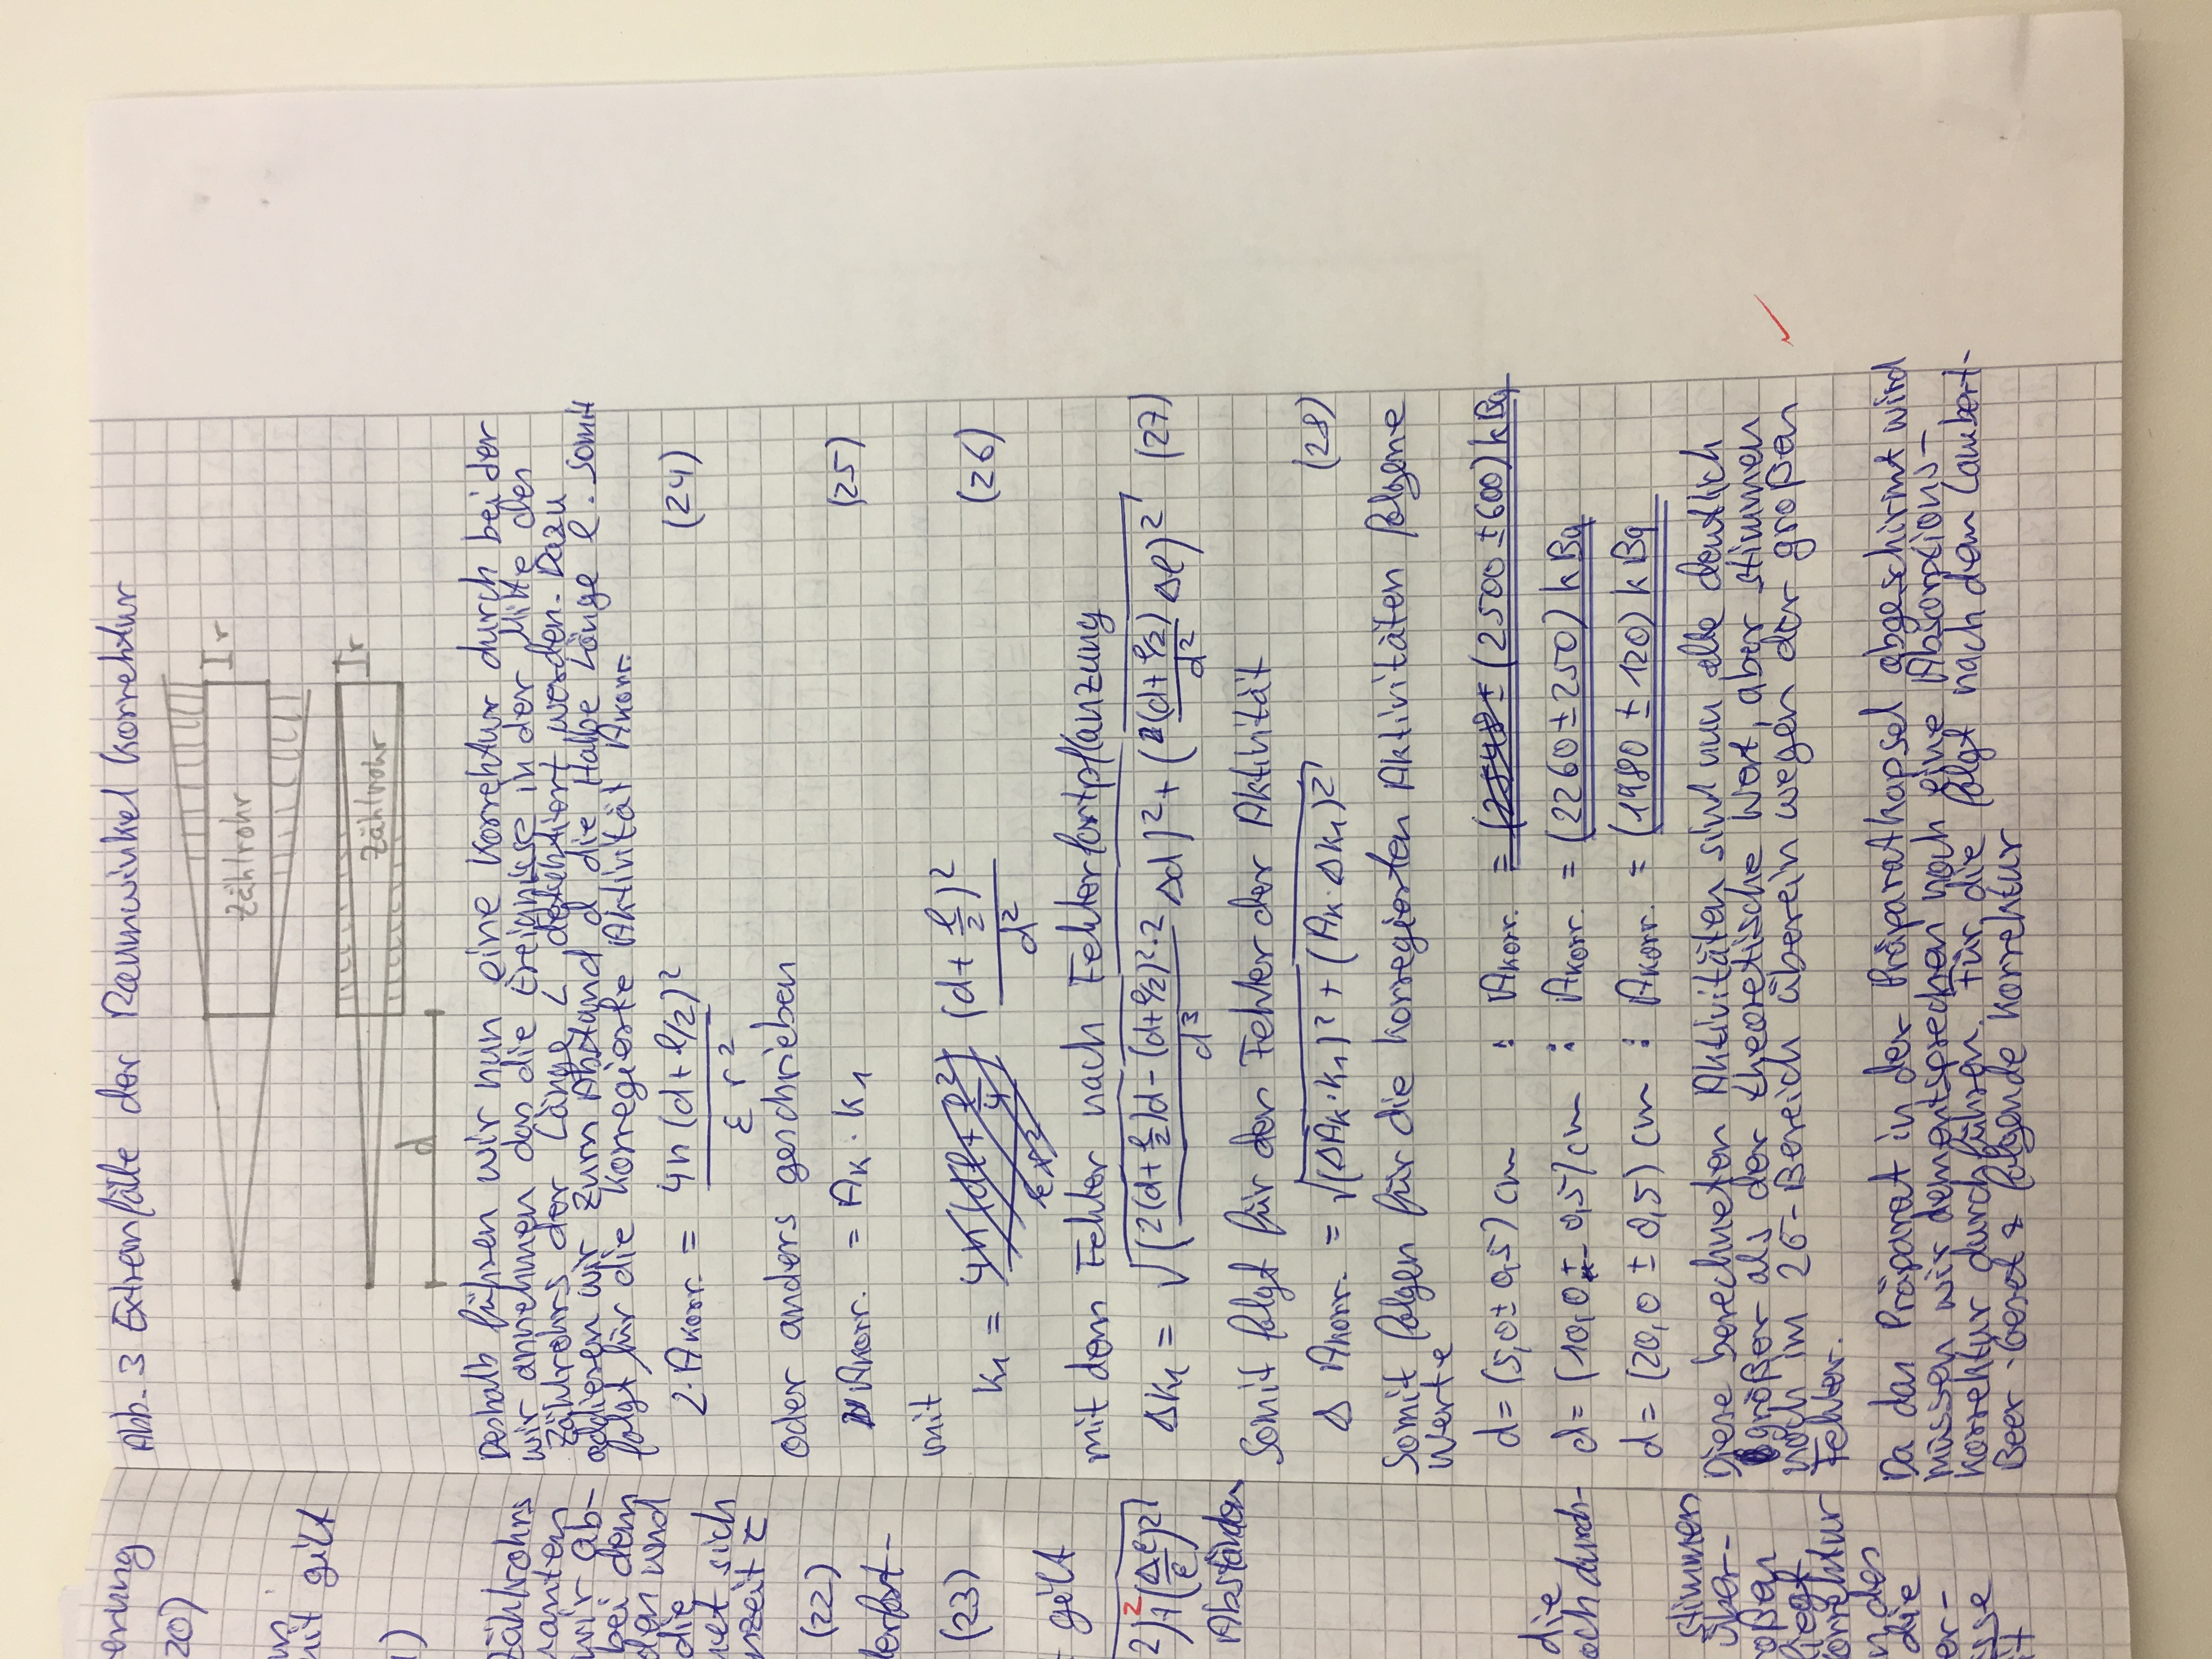 erung
20)
mit gilt
1)
Zählrohrs
wir ab-
bei dem
den und
die
net sich
nzeit τ
(22)
lerfort-
(23)
gilt
2)² + (Δε/ε)²
Abständen
die
och durch-
stimmen
über-
oßen
liegt
orrektur
n des
die
er-
isse
it
Abb. 3 Extremfälle der Raumwinkel Korrektur
Zählrohr
I r
Zählrohr
I r
d
Deshalb führen wir nun eine Korrektur durch bei der
wir annehmen das die Ereignisse in der Mitte des
Zählrohrs der Länge L detektiert werden. Dazu
addieren wir zum Abstand d die Halbe Länge l. Somit
folgt für die Korregierte Aktivität Akorr.
2·Akorr. = 4n(d+l/2)² / (ε r²) (24)
oder anders geschrieben
Akorr. = A_K · k₁ (25)
mit
k₁ = (d + l/2)² / d² (26)
mit dem Fehler nach Fehlerfortpflanzung
Δk₁ = √((2(d+l/2)d-(d+l/2)²·2 / d³ Δd)² + ((d+l/2) / d² Δl)²) (27)
Somit folgt für den Fehler der Aktivität
Δ Akorr. = √((ΔA_K·k₁)² + (A_K·Δk₁)²) (28)
Somit folgen für die Korregierten Aktivitäten folgene
Werte
d = (5,0 ± 0,5) cm : Akorr. = (2500 ± 600) kBq
d = (10,0 ± 0,5) cm : Akorr. = (2260 ± 250) kBq
d = (20,0 ± 0,5) cm : Akorr. = (1980 ± 120) kBq
Diese berechneten Aktivitäten sind nun alle deutlich
größer als der theoretische Wert, aber stimmen
noch im 2σ-Bereich überein wegen der großen
Fehler.
Da das Präparat in der Präparatkapsel abgeschirmt wird
müssen wir dementsprechen noch eine Absorptions-
korrektur durchführen. Für die folgt nach dem Lambert-
Beer Gesetz folgende Korrektur